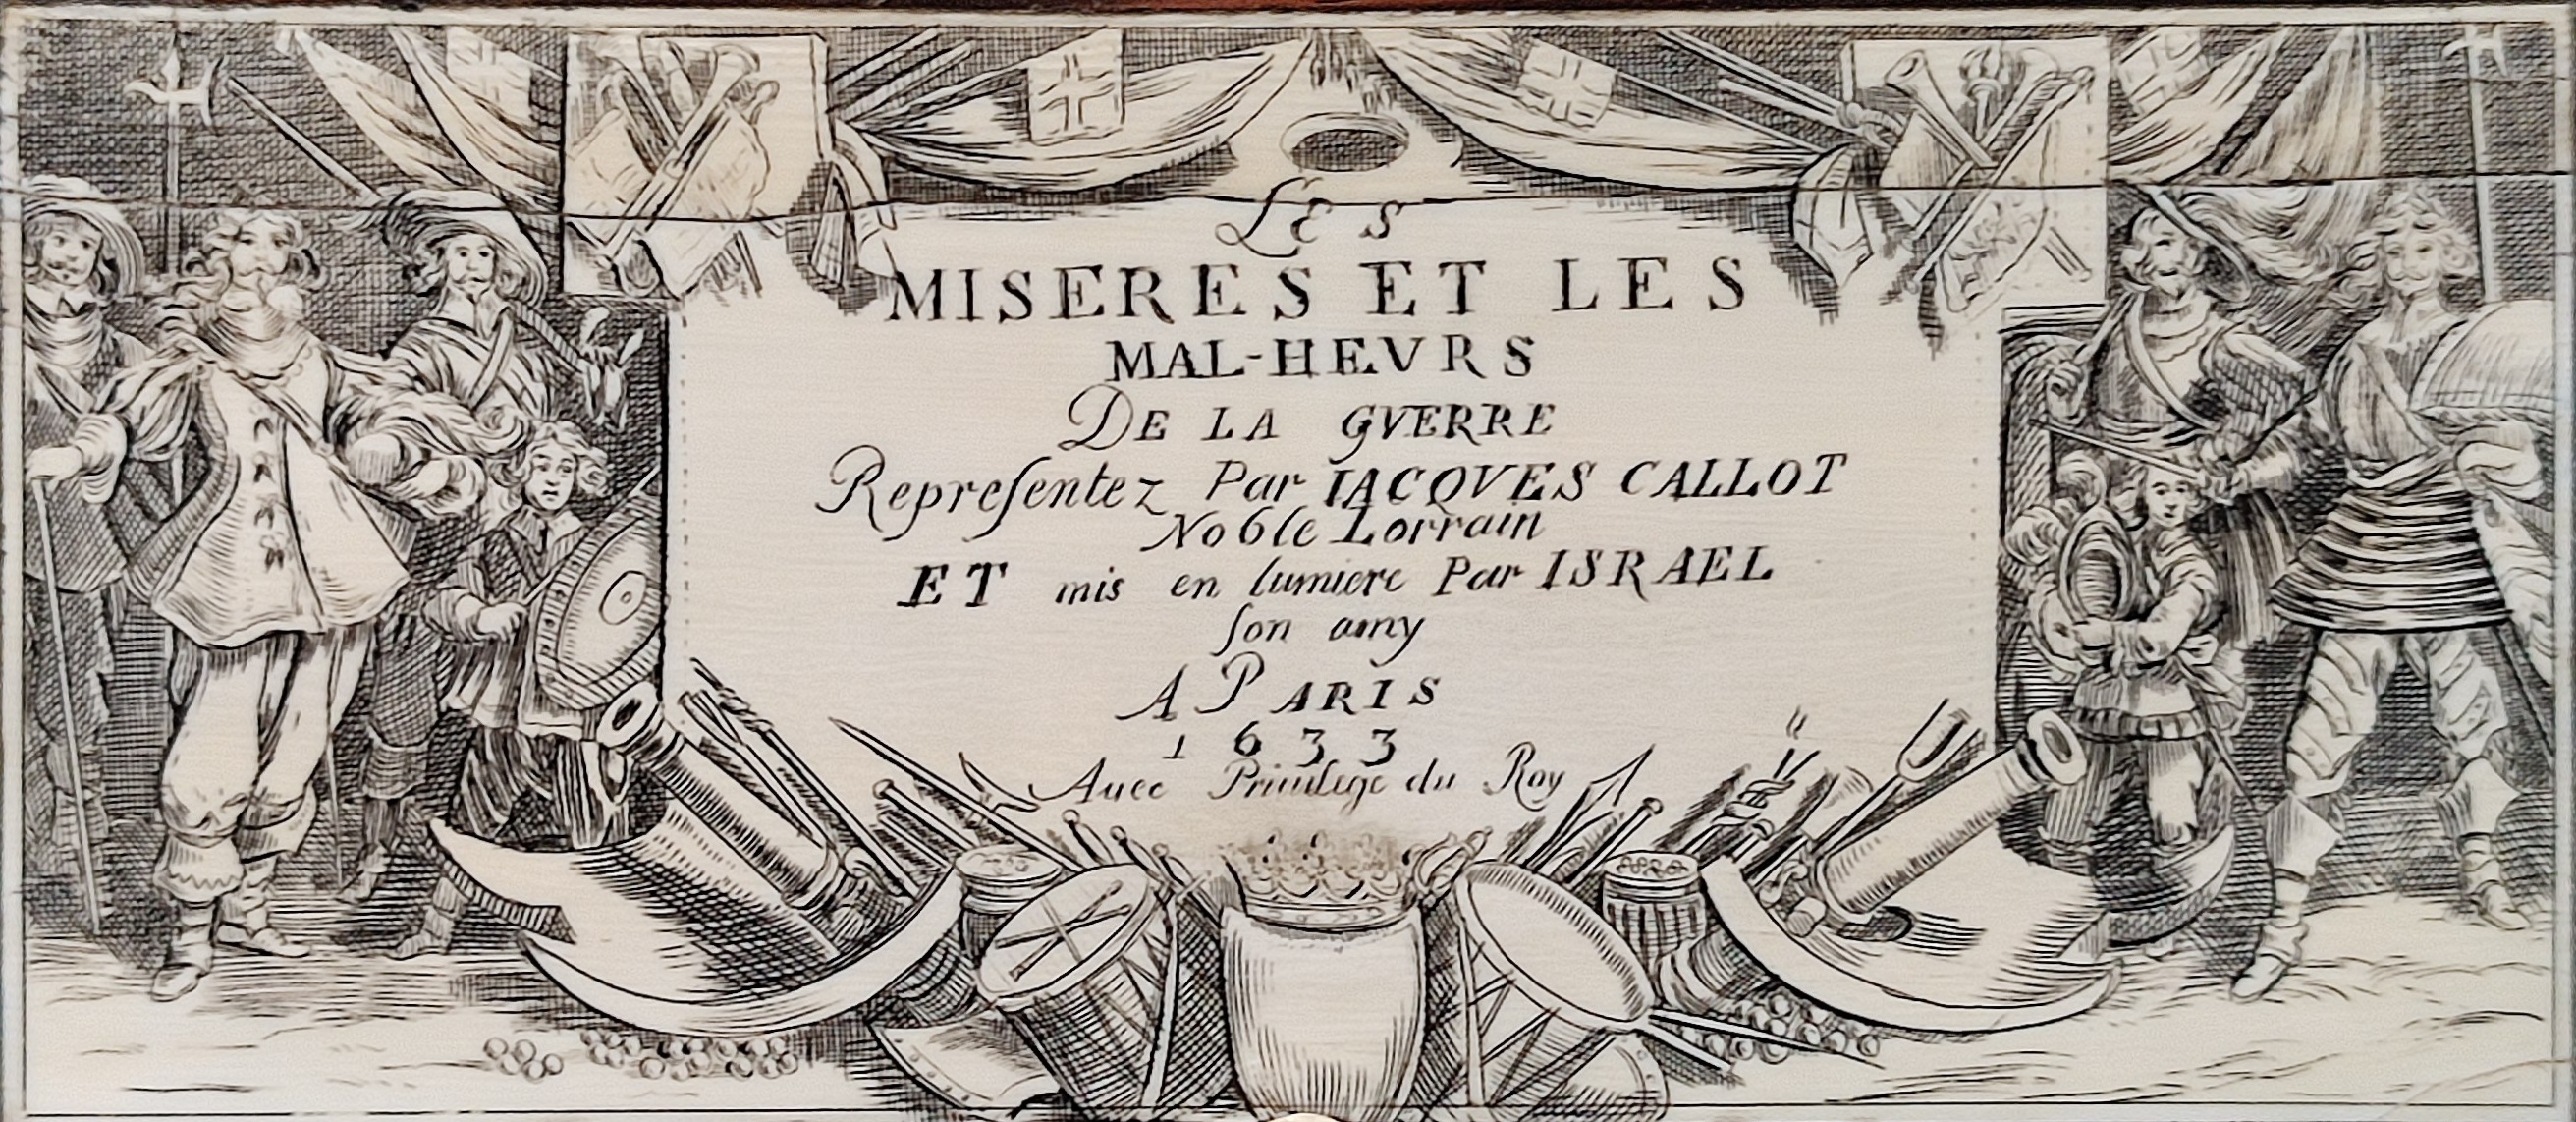 LES
MISERES ET LES
MAL-HEVRS
DE LA GVERRE
Repreſentez Par IACQVES CALLOT
Noble Lorrain
ET mis en lumiere Par ISRAEL
ſon amy
A PARIS
1633
Auec Priuilege du Roy